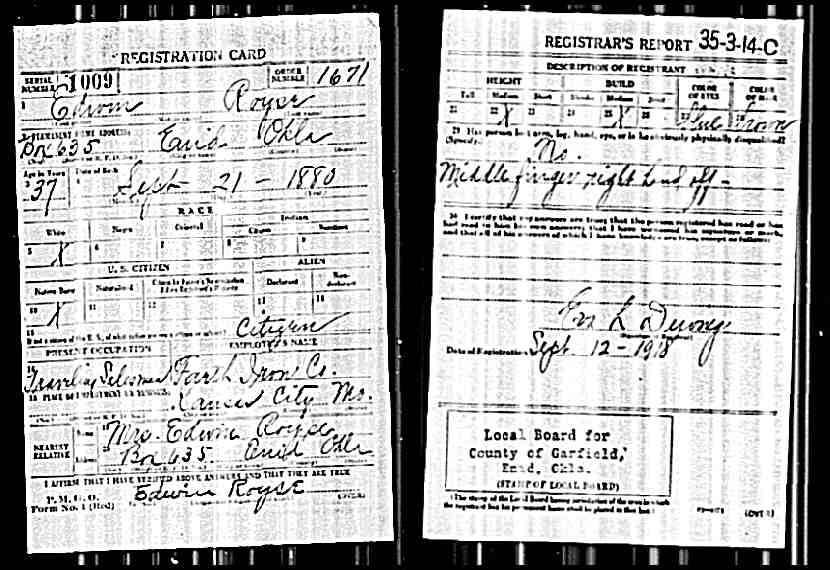 REGISTRATION CARD
SERIAL NUMBER 1009 ORDER NUMBER 1671
1 Edwin Royse
2 PERMANENT HOME ADDRESS
Box 635 Enid Okla
Age in Years Date of Birth
37 Sept 21 - 1880
RACE
White Negro Oriental Indian
Citizen Noncitizen
5 X 6 7 8 9
U. S. CITIZEN ALIEN
Native Born Naturalized Citizen by Father's Naturalization Declarant Non-declarant
10 X 11 12 13 14
15 Citizen
PRESENT OCCUPATION EMPLOYER'S NAME
Traveling Salesman Faeth Iron Co.
18 PLACE OF EMPLOYMENT OR BUSINESS
Kansas City Mo.
NEAREST RELATIVE Name Mrs. Edwin Royse
Address Box 635 Enid Okla
I AFFIRM THAT I HAVE VERIFIED ABOVE ANSWERS AND THAT THEY ARE TRUE
P. M. G. O.
Form No. 1 (Red) Edwin Royse (OVER)
REGISTRAR'S REPORT 35-3-14-C
DESCRIPTION OF REGISTRANT
HEIGHT BUILD COLOR OF EYES COLOR OF HAIR
Tall Medium Short Slender Medium Stout
21 22 X 23 24 25 X 26 27 Blue 28 Brown
29 Has person lost arm, leg, hand, eye, or is he obviously physically disqualified?
(Specify.) No.
Middle finger right hand off -
30 I certify that my answers are true; that the person registered has read or has
had read to him his own answers; that I have witnessed his signature or mark,
and that all of his answers of which I have knowledge are true, except as follows:
Date of Registration Sept 12 - 1918
Local Board for
County of Garfield,
Enid, Okla.
(STAMP OF LOCAL BOARD)
(The stamp of the Local Board having jurisdiction of the area in which
the registrant has his permanent home shall be placed in this box.)
(OVER)